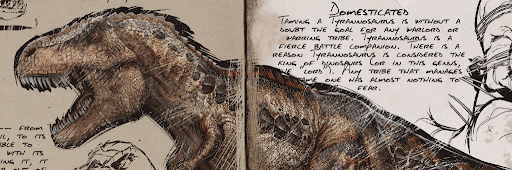 Domesticated
Taming a Tyrannosaurus is without a
doubt the goal for any warlord or
warring tribe. Tyrannosaurus is a
fierce battle companion. There is a
reason Tyrannosaurus is considered the
king of dinosaurs (or in this genus,
the lord). Any tribe that manages
to tame one has almost nothing to
fear.
-- from
to its
able to
with its
ing it, it
out of